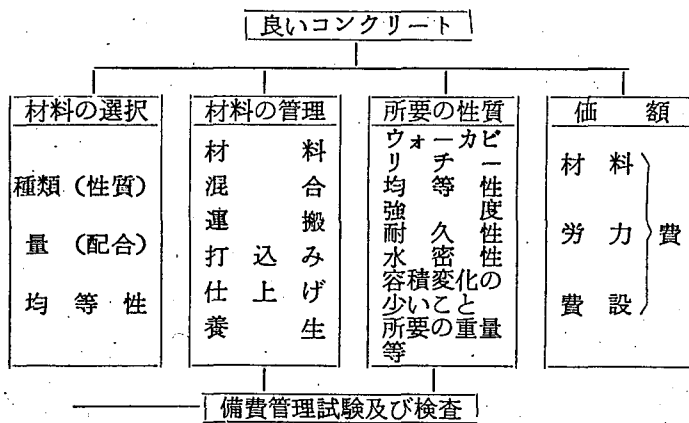 良いコンクリート
材料の選択
種類(性質)
量(配合)
均等性
材料の管理
材料
混合
運搬
打込み
仕上げ
養生
所要の性質
ウォーカビ
リチー
均等性
強度
耐久性
水密性
容積変化の
少いこと
所要の重量
等
価額
材料
労力
費設
費
備費管理試験及び検査